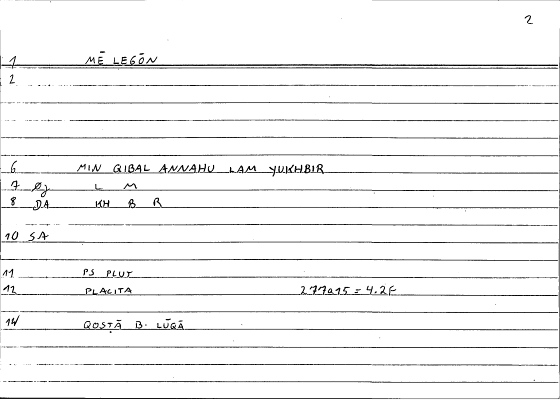 2
1 MĒ LEGŌN
2
6 MIN QIBAL ANNAHU LAM YUKHBIR
7 L M
8 DA KH B R
10 SA
11 PS PLUT
12 PLACITA 277a15 = 4.2F
14 QOSṬĀ B. LŪQĀ